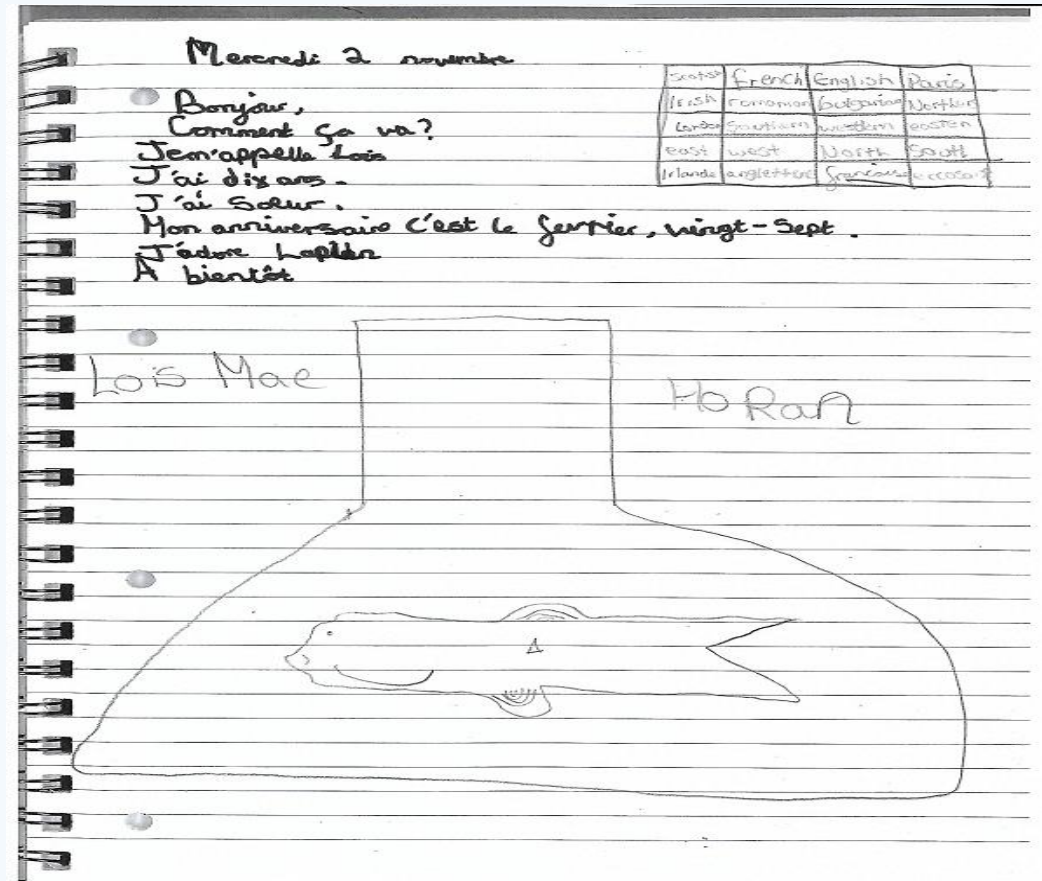 Mercredi 2 novembre
Bonjour,
Comment ça va?
Jem'appelle Lois
J'ai dix ans.
J'ai Soeur.
Mon anniversaire C'est le fevrier, vingt-Sept.
J'adore Lapin
À bientôt
French English Paris
Irish romanian bulgarian Northern
London Southern western eastern
east west North South
Irlande
Lois Mae
HoRan